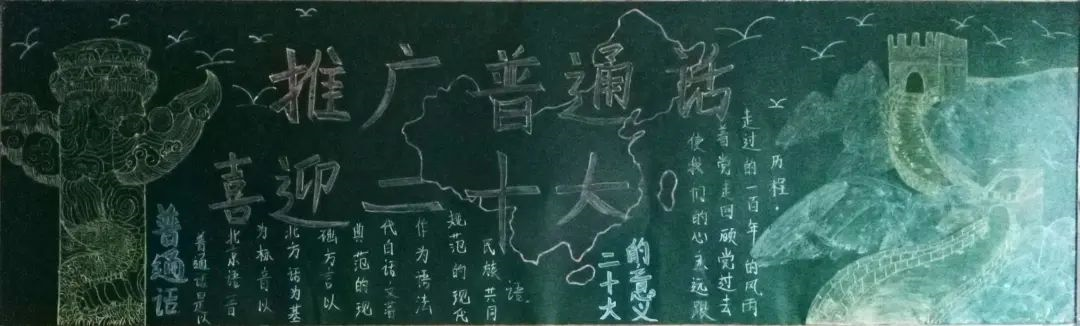 推广普通话
喜迎二十大
普通话
普通话是以
北京语音
为标音以
北方话为基
础方言以
典范的现
代白话文著
作为语法
规范的现代
民族共同
语。
二十大
的意义
使我们的心永远跟
着党走回顾党过去
走过的一百年的风雨
历程。